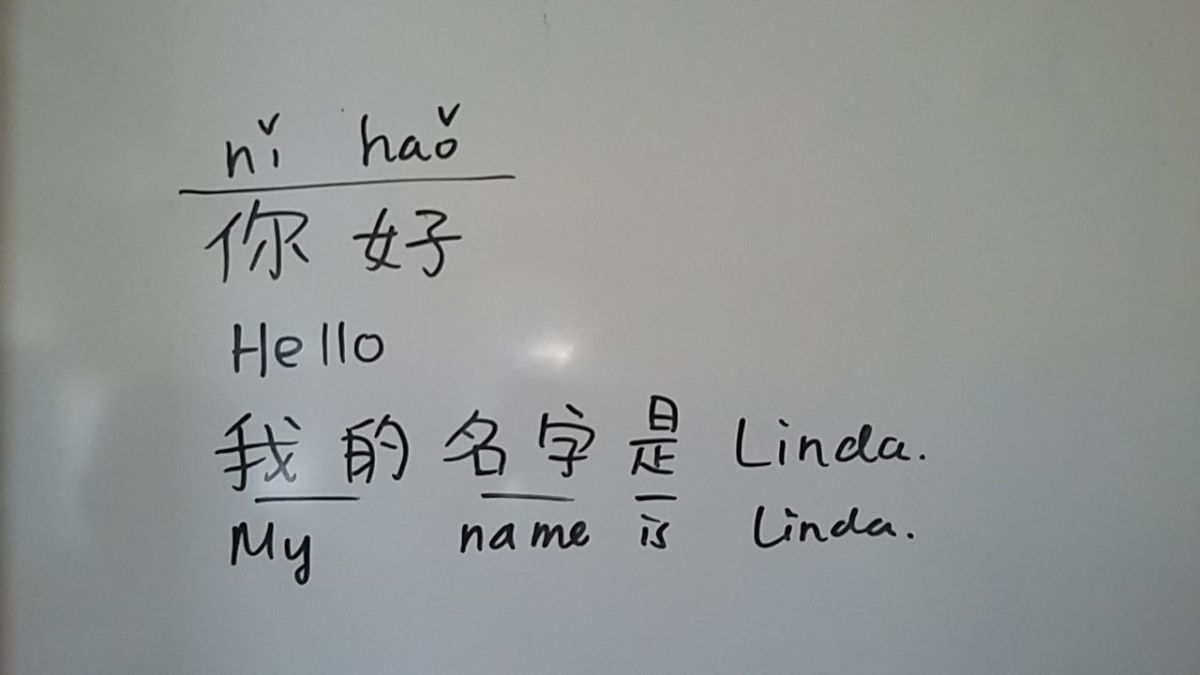 nǐ haǒ
你 好
Hello
我 的 名 字 是 Linda.
My name is Linda.